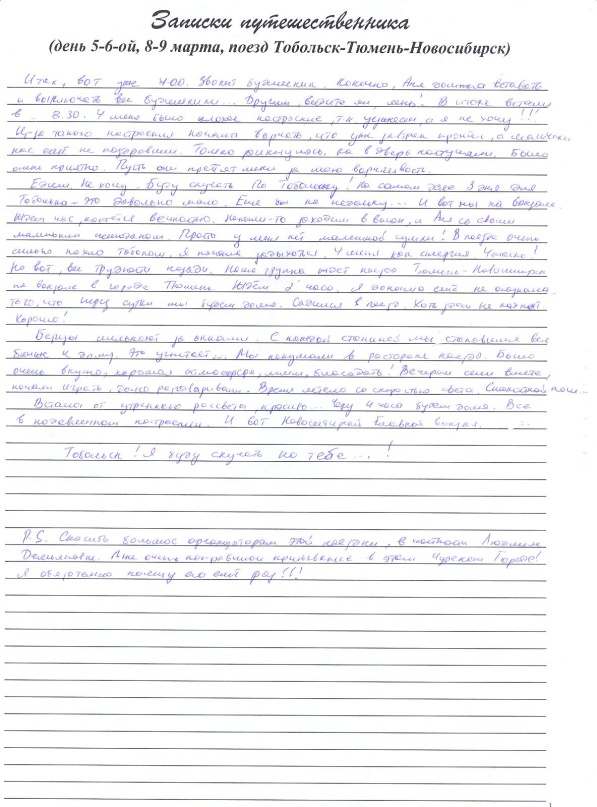 Записки путешественника
(день 5-6-ой, 8-9 марта, поезд Тобольск-Тюмень-Новосибирск)
Итак, вот уже 4:00. Звонит будильник. Конечно, Аня должна вставать
и выключать все будильники... Другим, видите ли, лень! В итоге встали
в 8.30. У меня было плохое настроение, т.к. уезжаем, а я не хочу!!!
Из-за такого настроения начала ворчать, что уже
нас ещё не поздравили. Только заикнулась, как в дверь постучали. Было
очень приятно. Пусть они простят меня за мою ворчливость.
Едем. Не хочу. Буду скучать по Тобольску. На самом деле 3 дня для
Тобольска - это довольно мало. Ещё бы на недельку... И вот мы на вокзале.
Ждём час, кажется вечностью. Наконец-то заходим в вагон, и Аня со своим
маленьким чемоданом. Просто у меня нет маленькой сумки! В поезде очень
сильно пахло табаком, я начала задыхаться. У меня как аллергия. Ужасно!
Но вот, все трудности позади. Наша группа ждёт поезд Тюмень-Новосибирск
на вокзале в городе Тюмень. Ждём 2 часа. Я
того, что через сутки мы будем дома. Садимся в поезд. Хотя бы не пахнет.
Хорошо!
Берёзы мелькают за окнами. С каждой станцией мы становимся всё
ближе к дому. Это угнетает... Мы покушали в ресторане поезда. Было
очень вкусно, хорошая атмосфера, благодать! Вечером сели вместе,
начали играть, долго разговаривали. Время летело со скоростью света. Спокойной ночи...
Встали от утреннего рассвета, красиво... Через 4 часа будем дома. Все
в подавленном настроении. И вот Новосибирск Главный вокзал.
Тобольск! Я буду скучать по тебе...!
P.S. Спасибо большое организаторам этой поездки, в частности Людмиле
Демьяновне. Мне очень понравилось пребывание в этом Чудесном Городе!
Я обязательно посещу его ещё раз!!!
1